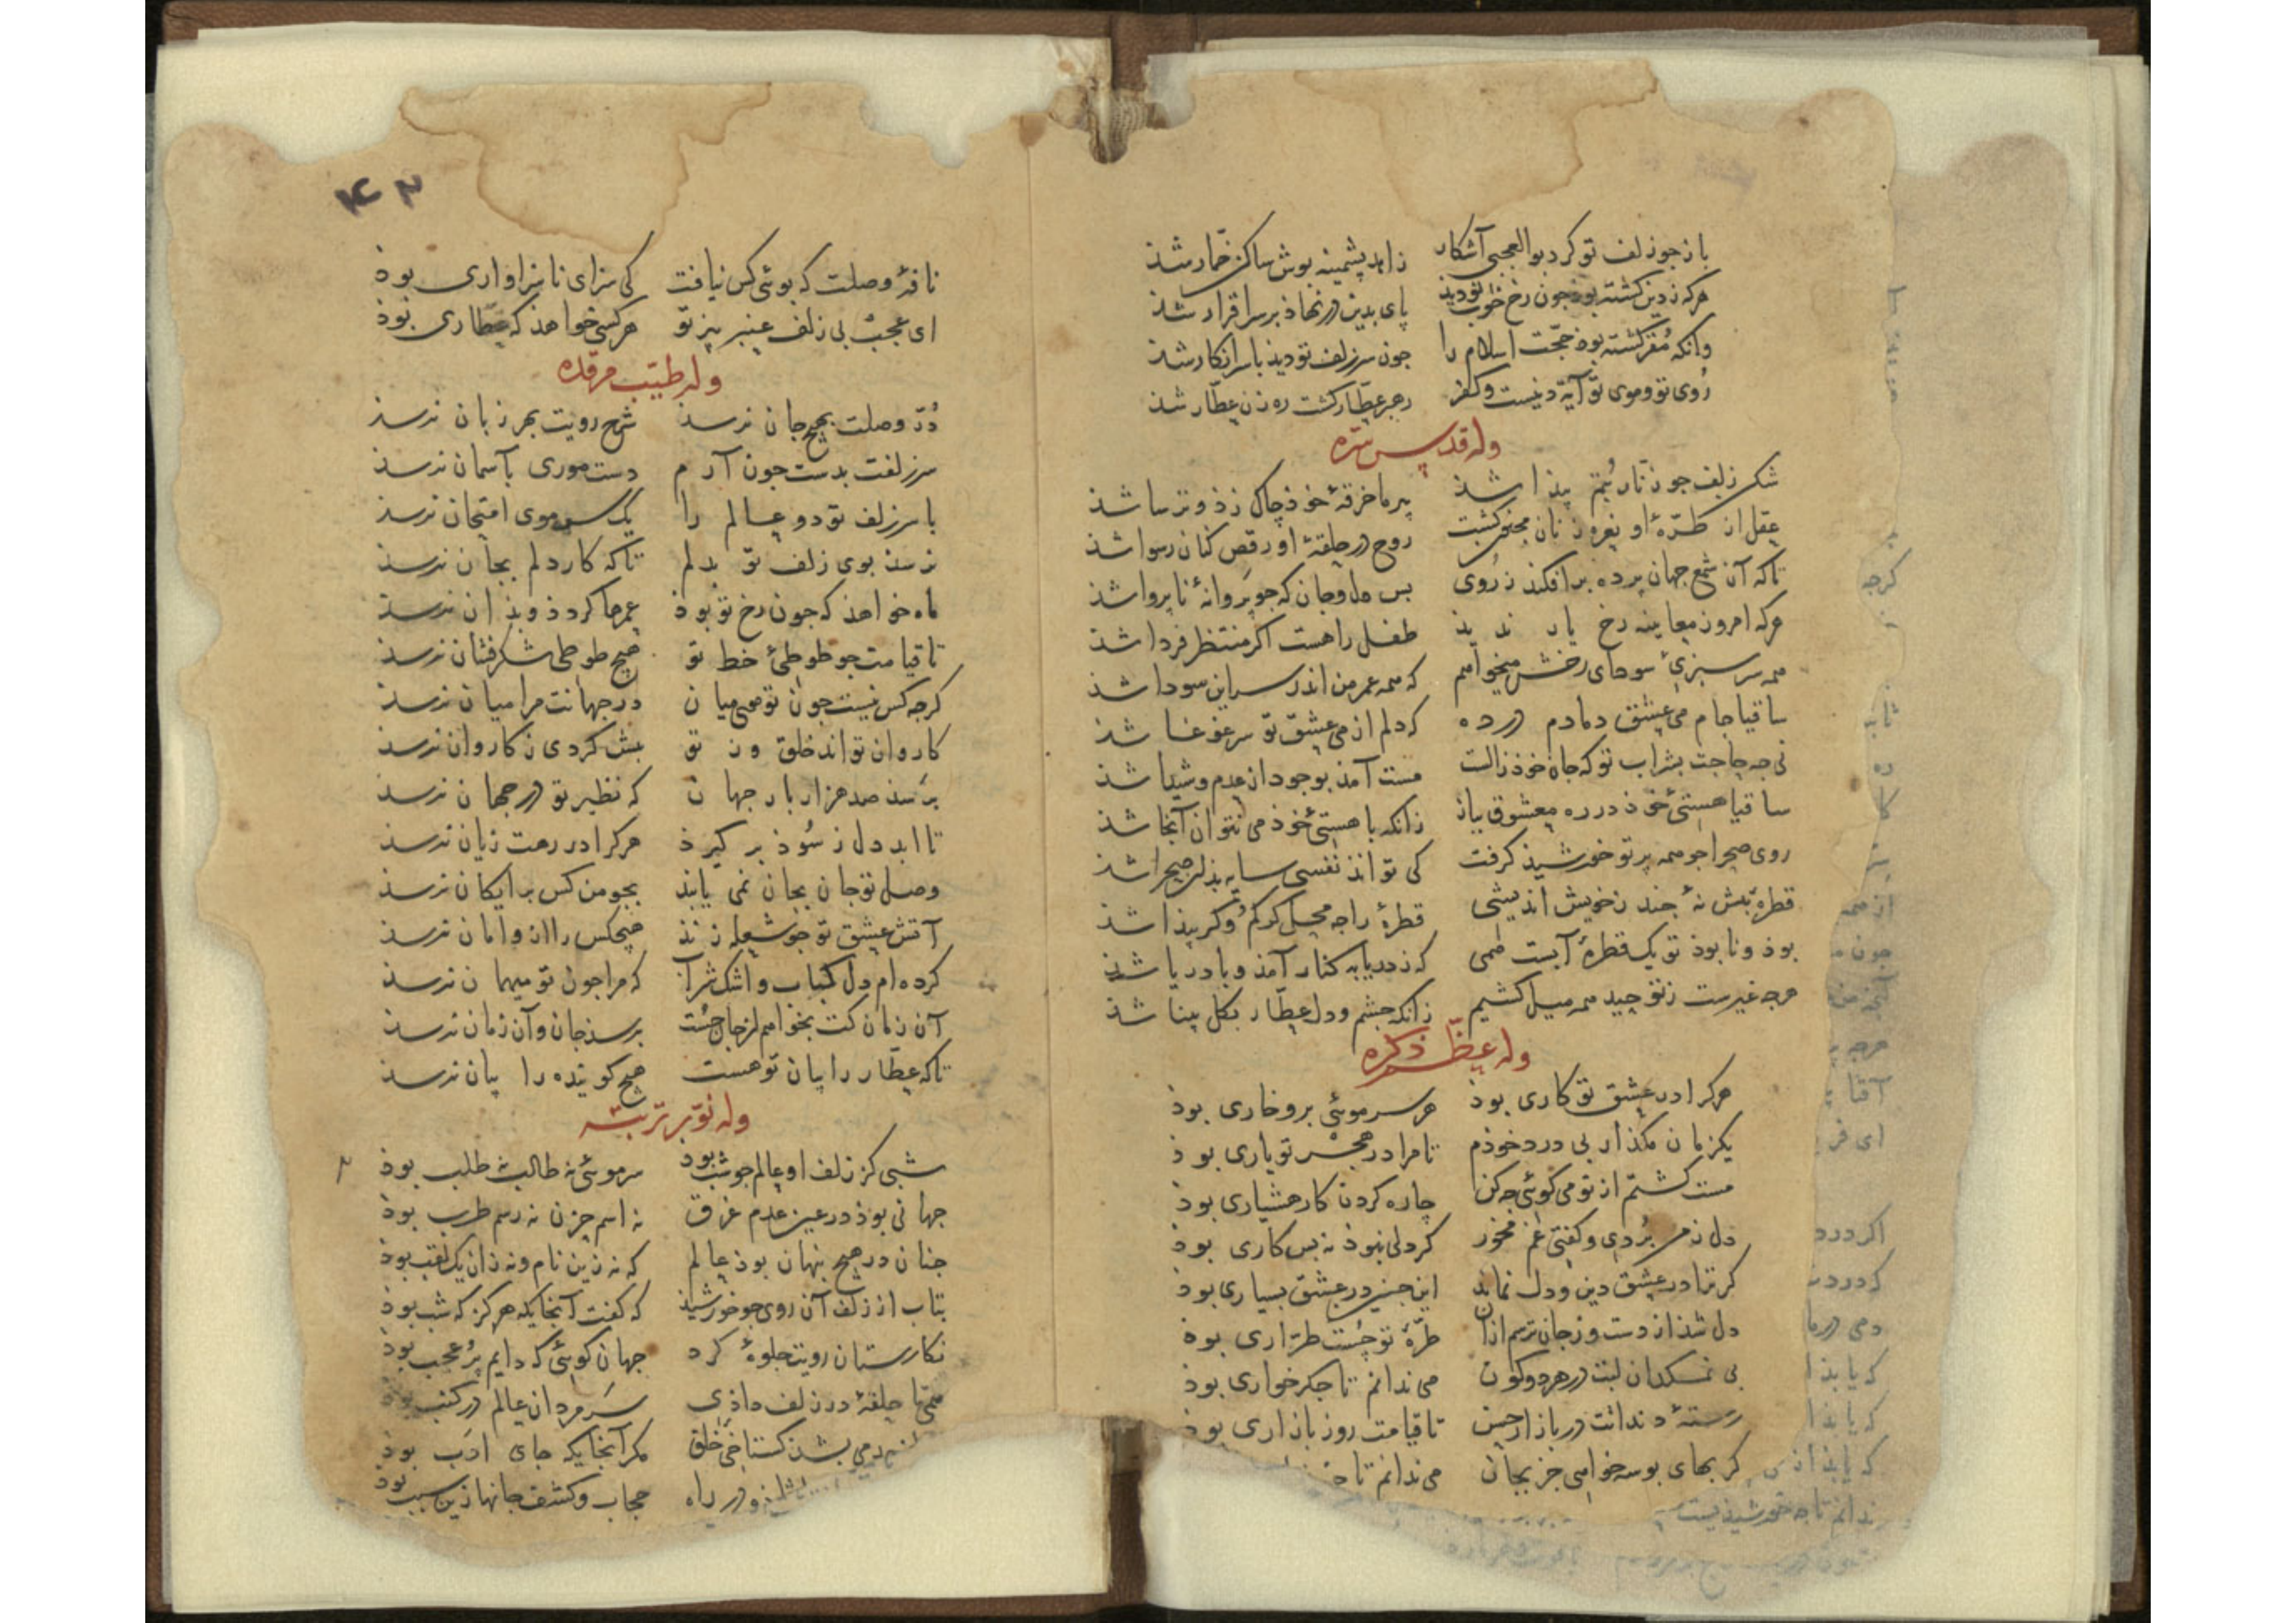 باز جو زلف تو کرد بوالعجبی آشکار زاهد پشمینه پوش ساکن خمّار شذ
هرکه ز دین کشته بوذ جون رخ خوب تو دید پای بدین در نهاذ بر سر اقرار شذ
وانکه مُقر کشته بوذ حجّت اسلام را جون سر زلف تو دیذ با سر انکار شذ
رُوی تو و موی تو آیهٔ دینست و کفر رهبر عطّار کشت ره زن عطّار شذ
وله قدس سره
شکن زلف جو زنّار بُتم پیذا شذ پیر ما خرقهٔ خوذ چاک زذ و ترسا شذ
عقل از طرّهٔ او نعره زنان مجنون کشت روح در حلقهٔ او رقص کنان رسوا شذ
تا که آن شمع جهان پرده بر افکند ز رُوی بس دل و جان که جو پروانهٔ ناپروا شذ
هرکه امروز معاینه رخ یار ندید طفل راهست اکر منتظر فردا شذ
همه سرسبزیٔ سودای رخش میخواهم که همه عمر من اندر سر این سودا شذ
ساقیا جام می عشق دمادم در ده که دلم از می عشق تو سر غوغا شذ
نی جه حاجت بشراب تو که جان خوذ ز الست مست آمذ بوجود از عدم و شیدا شذ
ساقیا هستیٔ خوذ در ره معشوق بباز زانکه با هستیٔ خوذ می نتوان آنجا شذ
روی صحرا جو همه پرتو خورشیذ کرفت کی تواند نفسی سایه بذان صحرا شذ
قطرهٔ بیش نهٔ جند ز خویش اندیشی قطرهٔ را جه محل کر کم و کر پیدا شذ
بوذ و نابوذ تو یک قطرهٔ آبست همی که ز دریا به کنار آمذ و با دریا شذ
هرجه غیرست ز توحید همه میل کشیم زانکه جشم و دل عطّار بکل بینا شذ
وله عظّم ذکره
هرکرا در عشق تو کاری بوذ هر سر موئی برو خاری بوذ
یکزمان مکذار بی درد خوذم تا مرا در هجر تو یاری بوذ
مست کشتم از تو می کوئی جه کن چاره کردن کار هشیاری بوذ
دل ز من بُردی و کفتی غم مخور کر دلی نبوذ نه بس کاری بوذ
کر ترا در عشق دین و دل نماند این جنین در عشق بسیاری بوذ
دل شذ از دست و ز جان ترسم از ان طرّهٔ تو جُست طرّاری بوذ
بی نمکدان لبت در هر دو کون می ندانم تا جکر خواری بوذ
رستهٔ دندانت در بازار حسن تا قیامت روز بازاری بوذ
کر بهای بوسه خواهی جز بجان می ندانم تا
۴۳
نافهٔ وصلت که بوئی کس نیافت کی سزای ناسزاواری بوذ
ای عجب بی زلف عنبر بیز تو هر کسی خواهذ که عطّاری بوذ
وله طیّب مرقده
دُرّ وصلت بهیچ جان نرسذ شرح رویت بهر زبان نرسذ
سر زلفت بدست جون آرم دست موری بآسمان نرسذ
با سر زلف تو دو عالم را یک سر موی امتحان نرسذ
نرسذ بوی زلف تو بدلم تا که کار دلم بجان نرسذ
ماه خواهذ که جون رخ تو بوذ عمرها کردذ و بذان نرسذ
تا قیامت جو طوطئ خط تو هیچ طوطی شکرفشان نرسذ
کرجه کس نیست جون تو موی میان در جهانت مرا میان نرسذ
کاروان تواند خلق و ز تو بیش کردی ز کاروان نرسذ
برسذ صد هزار بار جهان که نظیر تو در جهان نرسذ
تا ابد دل ز سُوذ بر کیرذ هرکرا در رهت زیان نرسذ
وصل تو جان بجان نمی یابذ بجو من کس برایکان نرسذ
آتش عشق تو جو شعله زنذ هیچکس را از و امان نرسذ
کرده ام دل کباب و اشک شراب که مرا جون تو میهمان نرسذ
آن زمان کت بخواهم از جان جُست برسذ جان و آن زمان نرسذ
تا که عطّار را بیان تو هست هیچ کوینده را بیان نرسذ
وله نوّر تربته
شبی کز زلف او عالم جو شب بوذ سر موئی نه طالب نه طلب بوذ
جهانی بوذ در عین عدم غرق نه اسم حزن نه رسم طرب بوذ
جنان در هیچ پنهان بوذ عالم که نه زین نام و نه زان یک لقب بوذ
بتاب از زلف آن روی جو خورشیذ که کفت آنجایکه هرکز که شب بوذ
نکارستان رویت جلوهٔ کرد جهان کوئی که دایم پُر عجب بوذ
همی تا حلقهٔ در زلف داذی سَر مردان عالم در کنب بوذ
می بشذ کستاخی خلق مکر آنجایکه جای ادب بوذ
در راه حجاب و کشف جانها زین سبب بوذ